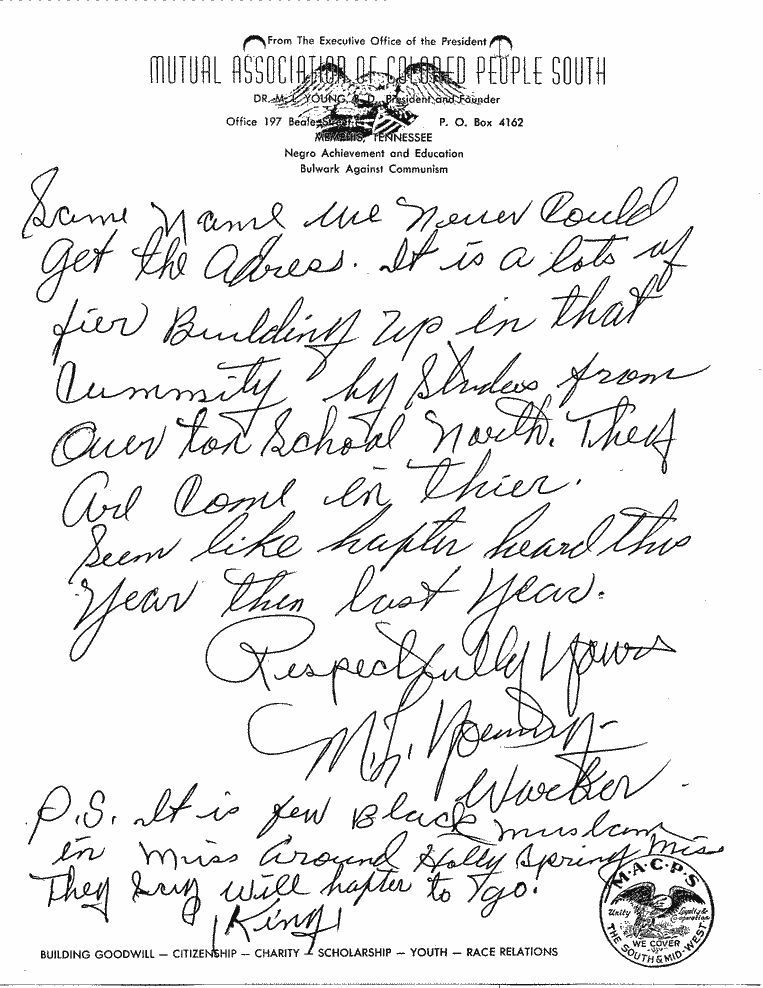 From The Executive Office of the President
MUTUAL ASSOCIATION OF COLORED PEOPLE SOUTH
DR. M. L. YOUNG, B. D., President and Founder
Office 197 Beale Street P. O. Box 4162
MEMPHIS, TENNESSEE
Negro Achievement and Education
Bulwark Against Communism
Same Name we Never Could
get the Adress. It is a lots of
fier Building up in that
Cummity by Studees from
Over ton School North. They
Are Come in thier.
Seem like hafter heard this
Year then last Year.
Respectfully Yours
M. L. Young
Worker
P.S. It is few Black muslam
in Miss Around Holly Spring Miss
They Say will hafter to go.
King
M·A·C·P·S
Unity Loyalty &
Cooperation
WE COVER
THE SOUTH & MID-WEST
BUILDING GOODWILL — CITIZENSHIP — CHARITY — SCHOLARSHIP — YOUTH — RACE RELATIONS